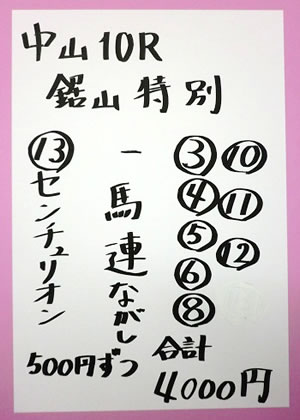 中山10R
鋸山特別
⑬センチュリオン
一馬連ながし
③④⑤⑥⑧
⑩⑪⑫
500円ずつ
合計
4000円